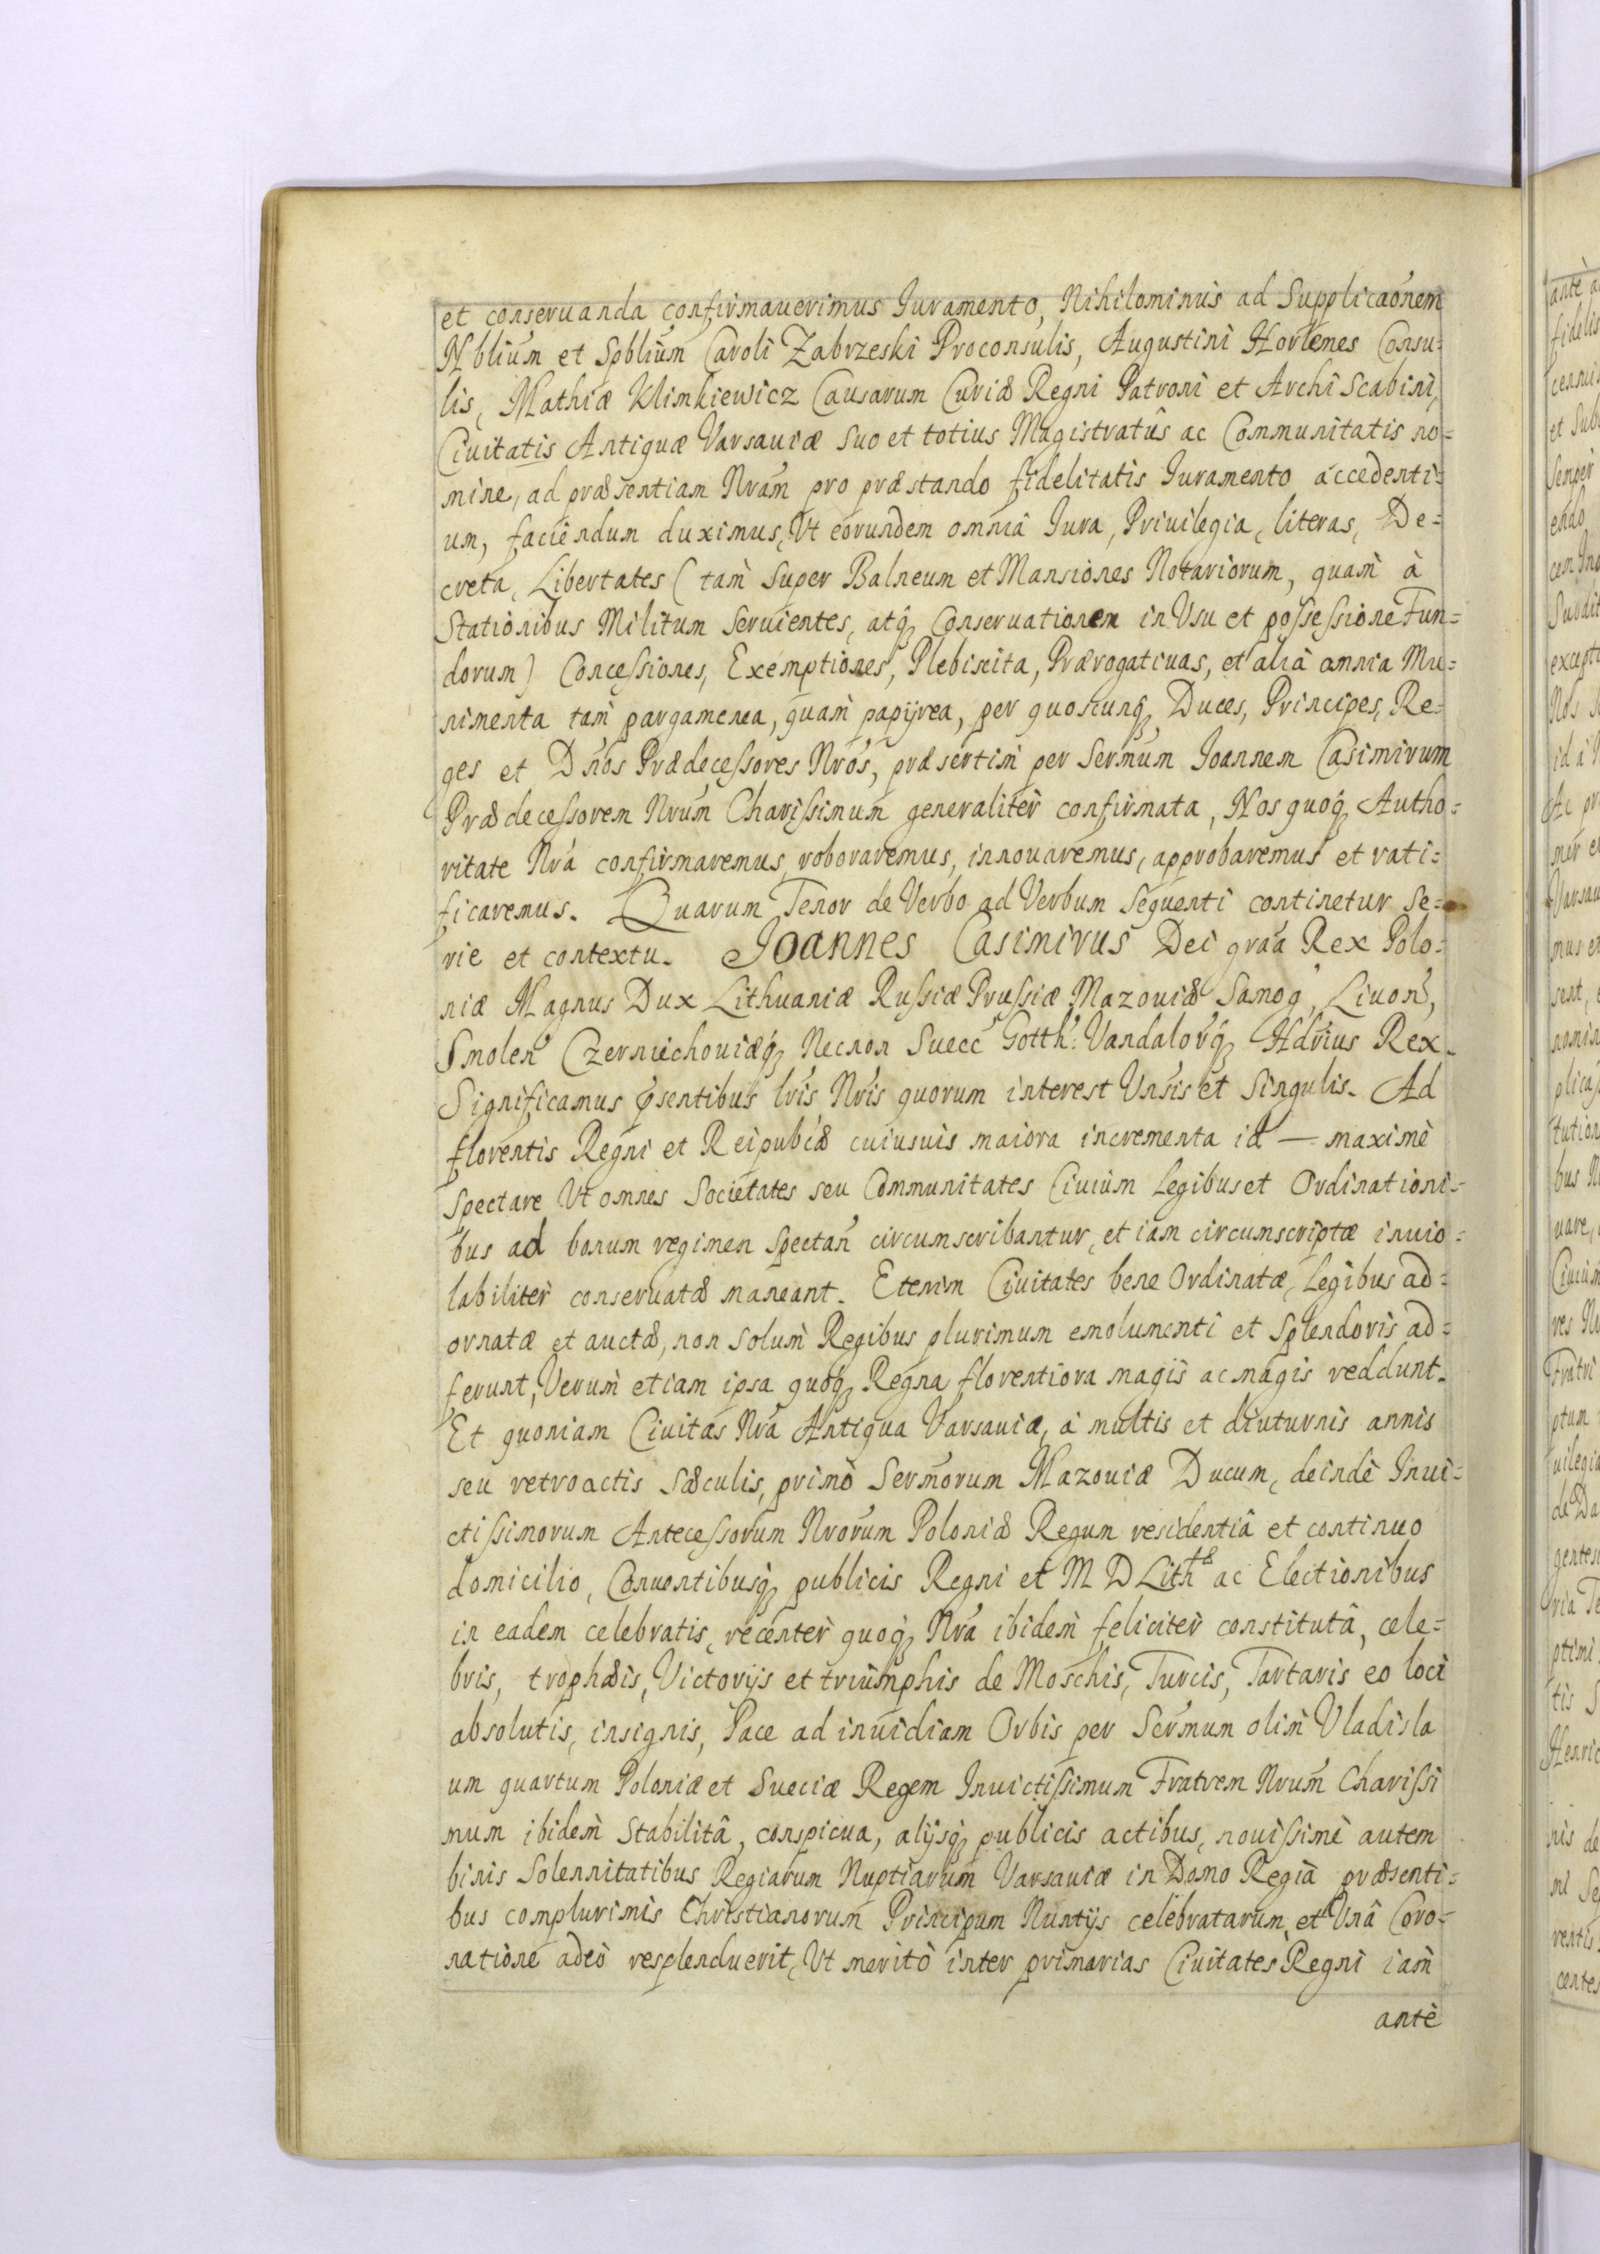 et conseruanda confirmauerimus Iuramento, Nihilominùs ad Supplicaónem
Nblium et Spblium Caroli Zabrzeski Proconsulis, Augustini Horlemes Consu=
lis, Mathiæ Klimkiewicz Causarum Curiæ Regni Patroni et Archi Scabini,
Ciuitatis Antiquæ Varsauiæ suo et totius Magistratûs ac Communitatis no=
mine, ad præsentiam Nram pro præstando fidelitatis Iuramento accedenti=
um, faciendum duximus, Vt eorundem omnia Iura, Priuilegia, literas, De=
creta, Libertates (tàm super Balneum et Mansiones Notariorum, quàm à
Stationibus Militum seruientes, atq; Conseruationem in Vsu et possessione Fun=
dorum) Concessiones, Exemptiones, Plebiscita, Prærogatiuas, et alia omnia Mu=
nimenta tàm pargamenea, quàm papÿrea, per quoscunq; Duces, Principes, Re=
ges et Dnos Prædecessores Nros, præsertìm per Sermum Ioannem Casimirum
Prædecessorem Nrum Charissimum generalitèr confirmata, Nos quoq; Autho=
ritate Nrá confirmaremus, roboraremus, innouaremus, approbaremus et rati=
ficaremus. Quarum Tenor de Verbo ad Verbum sequenti continetur se=
rie et contextu. Joannes Casimirus Dei graa Rex Polo=
niæ Magnus Dux Lithuaniæ Russiæ Prussiæ Mazouiæ Samog, Liuon,
Smolen Czerniechouiæq; Necnon Suecc Gotth: Vandalorq; Hdrius Rex.
Significamus psentibus lris Nris quorum interest Vnsis et Singulis. Ad
florentis Regni et Reipubcæ cuiusuis maiora incrementa id — maximè
spectare Vt omnes Societates seu Communitates Ciuium Legibus et Ordinationi=
bus ad bonum regimen spectan circumscribantur, et iam circumscriptæ inuio=
labilitèr conseruatæ maneant. Etenim Ciuitates bene Ordinatæ, Legibus ad=
ornatæ et auctæ, non solùm Regibus plurimum emolumenti et Splendoris ad=
ferunt, Verùm etiam ipsa quoq; Regna florentiora magis ac magis reddunt.
Et quoniam Ciuitas Nra Antiqua Varsauiæ, à multis et diuturnis annis
seu retroactis Sæculis, primò Sermorum Mazouiæ Ducum, deindè Inui=
ctissimorum Antecessorum Nrorum Poloniæ Regum residentiâ et continuo
domicilio, Conuentibusq; publicis Regni et M D Lithæ ac Electionibus
in eadem celebratis, recentèr quoq; Nrá ibidèm felicitèr constitutâ, cele=
bris, trophæis, Victorÿs et triumphis de Moschis, Turcis, Tartaris eo loci
absolutis, insignis, Pace ad inuidiam Orbis per Sermum olìm Vladisla
um quartum Poloniæ et Sueciæ Regem Inuictissimum Fratrem Nrum Charissi
mum ibidèm Stabilitâ, conspicua, alÿsq; publicis actibus, nouissimè autem
binis Solennitatibus Regiarum Nuptiarum Varsauiæ in Domo Regia præsenti=
bus complurimis Christianorum Principum Nuntÿs celebratarum, et Vnâ Coro=
natione adeò resplenduerit, Vt meritò inter primarias Ciuitates Regni iàm
antè